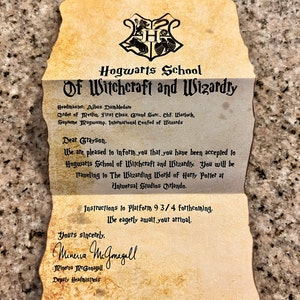 H
Hogwarts School
Of Witchcraft and Wizardry
Headmaster: Albus Dumbledore
Order of Merlin, First Class, Grand Sorc., Chf. Warlock,
Supreme Mugwump, International Confed. of Wizards
Dear Grayson,
We are pleased to inform you that you have been accepted to
Hogwarts School of Witchcraft and Wizardry. You will be
traveling to The Wizarding World of Harry Potter at
Universal Studios Orlando.
Instructions to Platform 9 3/4 forthcoming.
We eagerly await your arrival.
Yours sincerely,
Minerva McGonagall
Minerva McGonagall
Deputy Headmistress